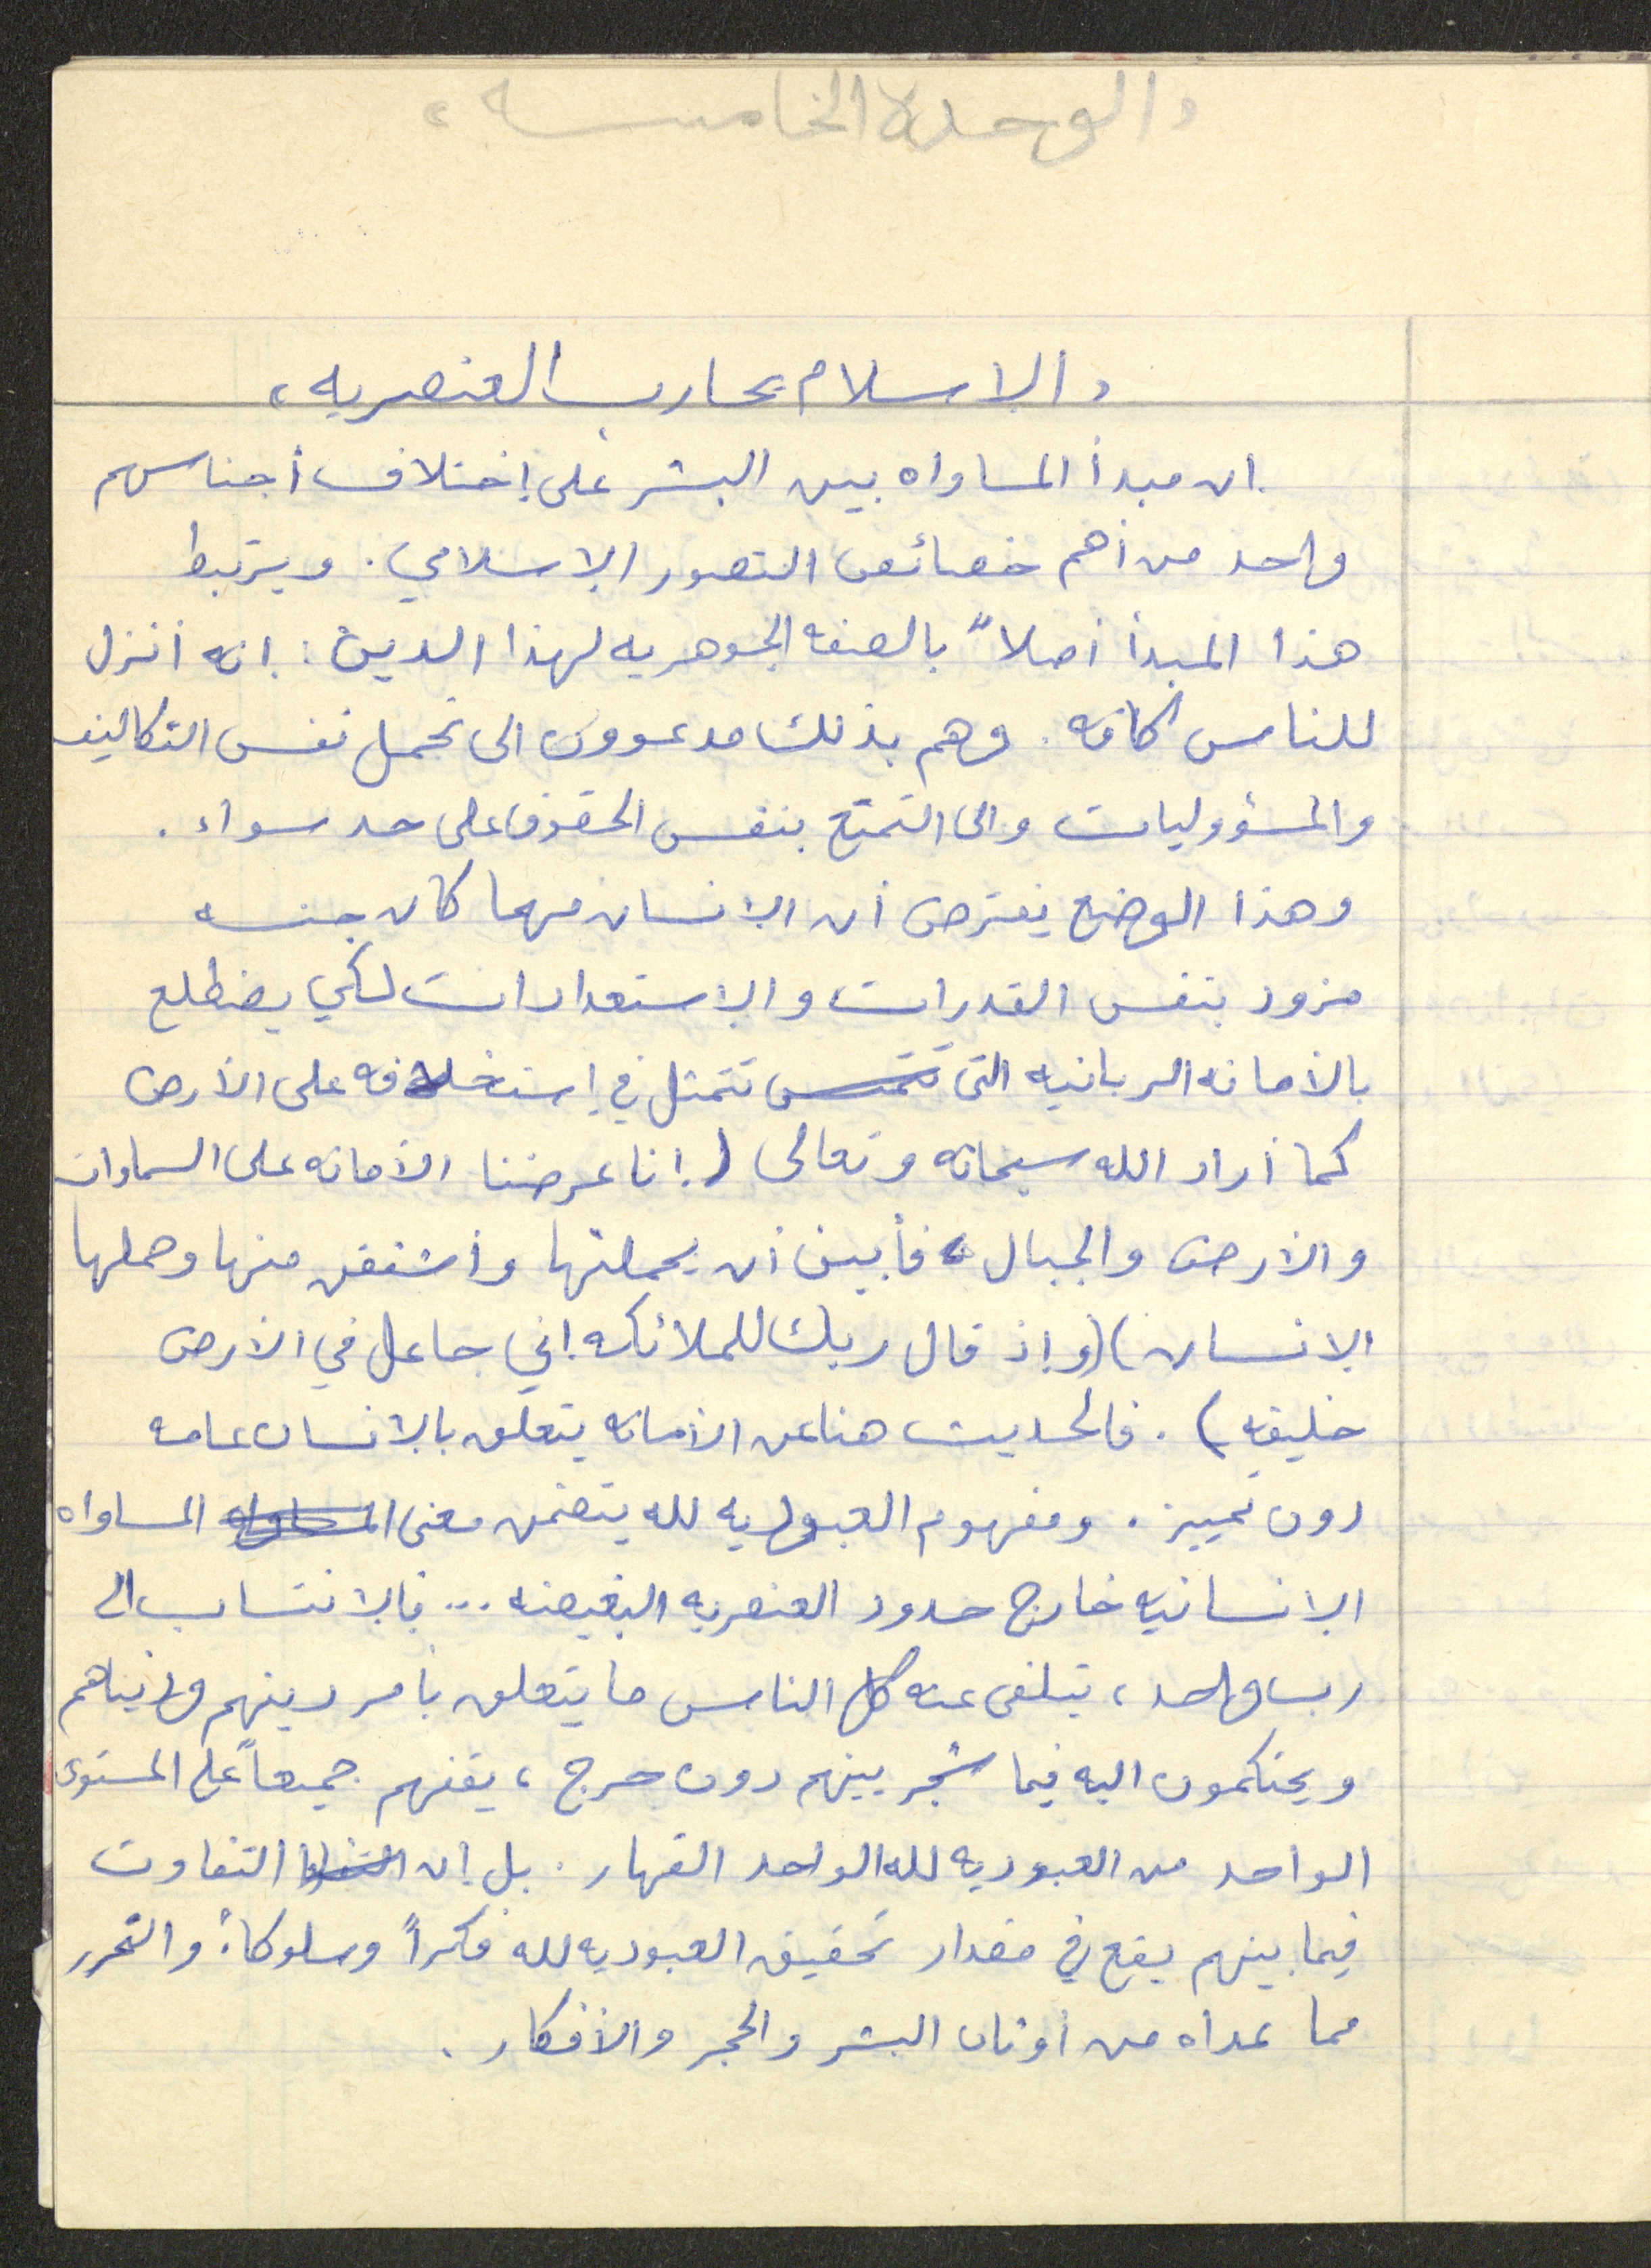 "الوحدة الخامسه"
"الاسلام يحارب العنصريه"
ان مبدأ المساواه بين البشر على إختلاف أجناسهم
واحد من أهم خصائص التصور الإسلامي. ويرتبط
هذا المبدأ أصلاً بالصفه الجوهريه لهذا الدين: انه أنزل
للناس كافه. وهم بذلك مدعوون الى تحمل نفس التكاليف
والمسؤوليات والى التمتع بنفس الحقوق على حد سواء.
وهذا الوضع يفترض أن الإنسان مهما كان جنسه
مزود بنفس القدرات والإستعدادات لكي يضطلع
بالأمانه الربانيه التى تتمثل في إستخلافه على الأرض
كما أراد الله سبحانه وتعالى (إنا عرضنا الأمانه على السماوات
والأرض والجبال فأبين أن يحملنها وأشفقن منها وحملها
الإنسان) (وإذ قال ربك للملائكه إني جاعل في الأرض
خليفه). فالحديث هنا عن الأمانه يتعلق بالإنسان عامه
دون تمييز. ومفهوم العبوديه لله يتضمن معنى المساواه
الإنسانيه خارج حدود العنصريه البغيضه... فالإنتساب الى
رب واحد، يتلقى عنه كل الناس ما يتعلق بأمر دينهم ودنياهم
ويحتكمون اليه فيما شجر بينهم دون حرج، يقفهم جميعاً على المستوى
الواحد من العبوديه لله الواحد القهار. بل إن التفاوت
فيما بينهم يقع في مقدار تحقيق العبوديه لله فكراً وسلوكاً، والتحرر
مما عداه من أوثان البشر والحجر والأفكار.